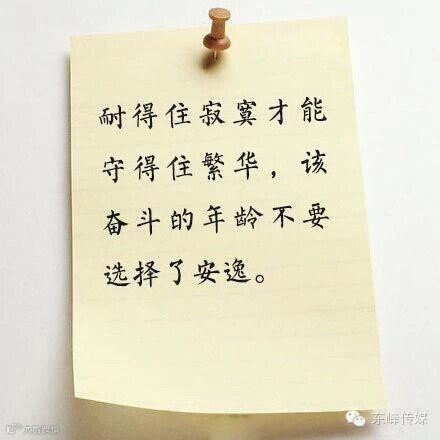 耐得住寂寞才能
守得住繁华，该
奋斗的年龄不要
选择了安逸。
东峰传媒